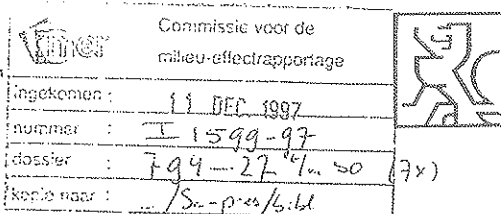 mer
Commissie voor de
milieu-effectrapportage
ingekomen : 11 DEC. 1997
nummer : I 1599-97
dossier : 794 — 27 t/m 30 (7x)
kopie naar :